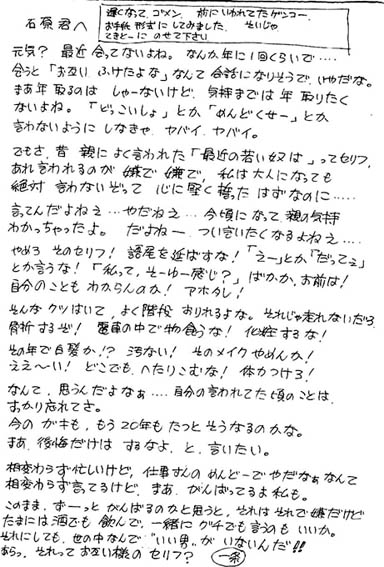 石原君へ
遅くなって、ゴメン。前にいわれてたゲンコー、
お手紙形式にしてみました。そいじゃ
てきどーに のせて下さい
元気? 最近 会ってないよね。なんか年に1回くらいで‥‥
会うと「お互い ふけたよな」なんて 会話になりそうで、いやだな。
まあ年 取るのは しゃーないけど、気持までは 年 取りたく
ないよね。「どっこいしょ」とか「めんどくせー」とか
言わないように しなきゃ、ヤバイ、ヤバイ。
でもさ、昔 親に よく言われた「最近の若い奴は」ってセリフ、
あれ言われるのが 嫌で 嫌で、私は大人になっても
絶対 言わないぞって 心に堅く誓った はずなのに‥‥‥
言ってんだよねえ…やだねえ… 今頃になって親の気持
わかっちゃったよ。 だよねー、つい言いたくなるよねえ‥‥
やめろ そのセリフ! 語尾を延ばすな!「えー」とか「だってぇ」
とか言うな!「私って、そーゆー感じ?」ばかか、お前は!
自分のことも わからんのか! アホタレ!
そんな クツはいて、よく階段 おりれるよな。それじゃ走れないだろ
骨折するぞ! 電車の中で物食うな! 化粧するな!
その年で白髪か!? 汚ない! そのメイクやめんか!
ええ〜い! どこでも、へたりこむな! 体力つけろ!
なんて、思うんだよなぁ‥‥ 自分の言われてた頃のことは、
すっかり忘れてさ。
今の ガキも、もう20年も たっと そうなるのかな。
まあ、後悔だけは するなよ、と、言いたい。
相変わらず忙しいけど、仕事すんの めんどーでやだなぁなんて
相変わらず 言ってるけど、まあ、がんばってるよ私も。
このまま、ずーっと がんばるのかと思うと、それは それで嫌だけど
たまには酒でも 飲んで、一緒に グチでも言うのも いいか。
それにしても、世の中なんで“いい男”が いないんだ!!
あらっ、それって お互い様の セリフ? 一条